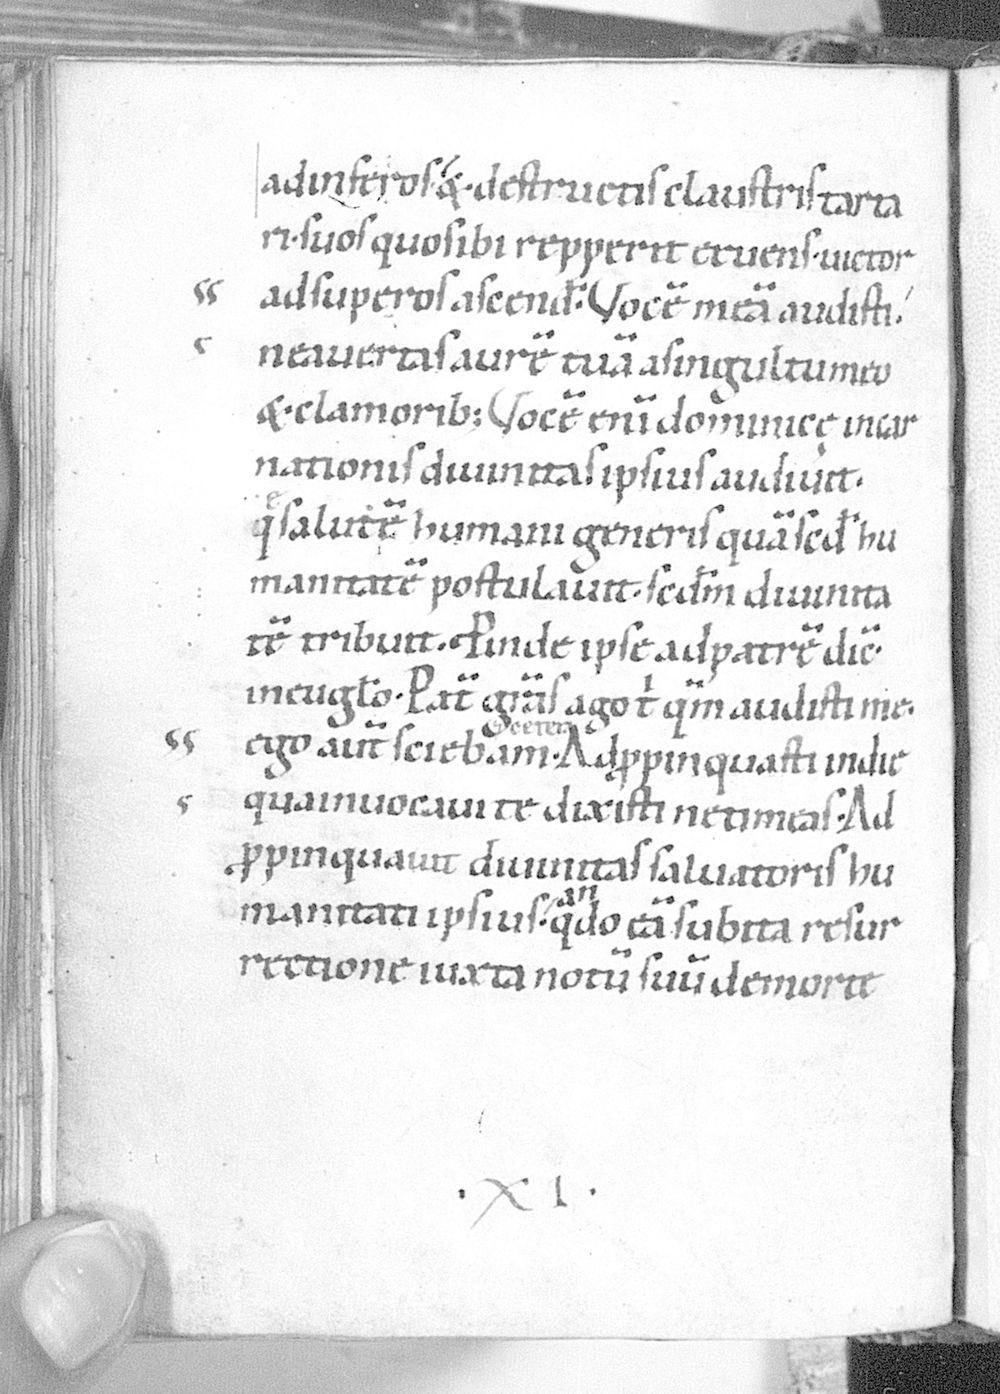 ad inferos· &· destructis claustris tarta
ri· suos quos ibi repperit eruens· uictor
ad superos ascend̅· Uocē meā audisti·
ne auertas aurē tuā a singultu meo
&· clamorib; Uocē eni̅ dominicę incar
nationis diuinitas ipsius audiuit·
q̄ salutē humani generis quā scd̄ hu
manitatē postulauit· scd̄m diuinita
tē tribuit· Proinde ipse ad patrē dic̄·
in euglo̅· Pat̄ gr̄as ago t̄ qm̄ audisti me·
& cetera
ego aut̄ sciebam· Adpropinquasti in die
qua inuocaui te dixisti ne timeas· Ad
propinquauit diuinitas saluatoris hu
manitati ipsius· quando eā subita resur
rectione iuxta uotū suū de morte
· XI ·